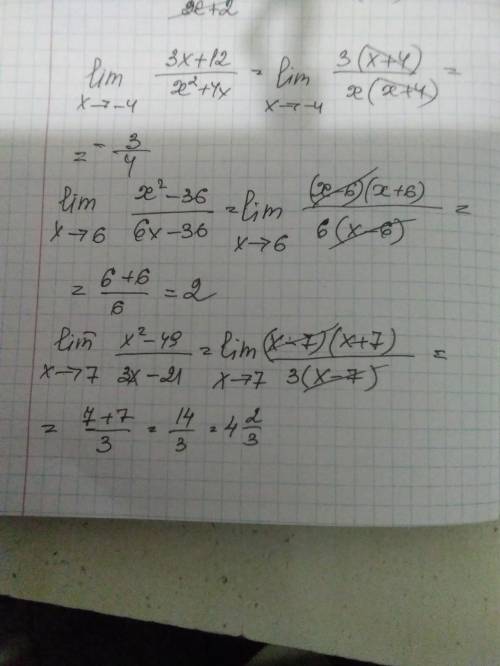 x+2
lim x→-4 (3x+12)/(x²+4x) = lim x→-4 3(x+4)/x(x+4) =
= -3/4
lim x→6 (x²-36)/(6x-36) = lim x→6 (x-6)(x+6)/6(x-6) =
= (6+6)/6 = 2
lim x→7 (x²-49)/(3x-21) = lim x→7 (x-7)(x+7)/3(x-7) =
= (7+7)/3 = 14/3 = 4 2/3